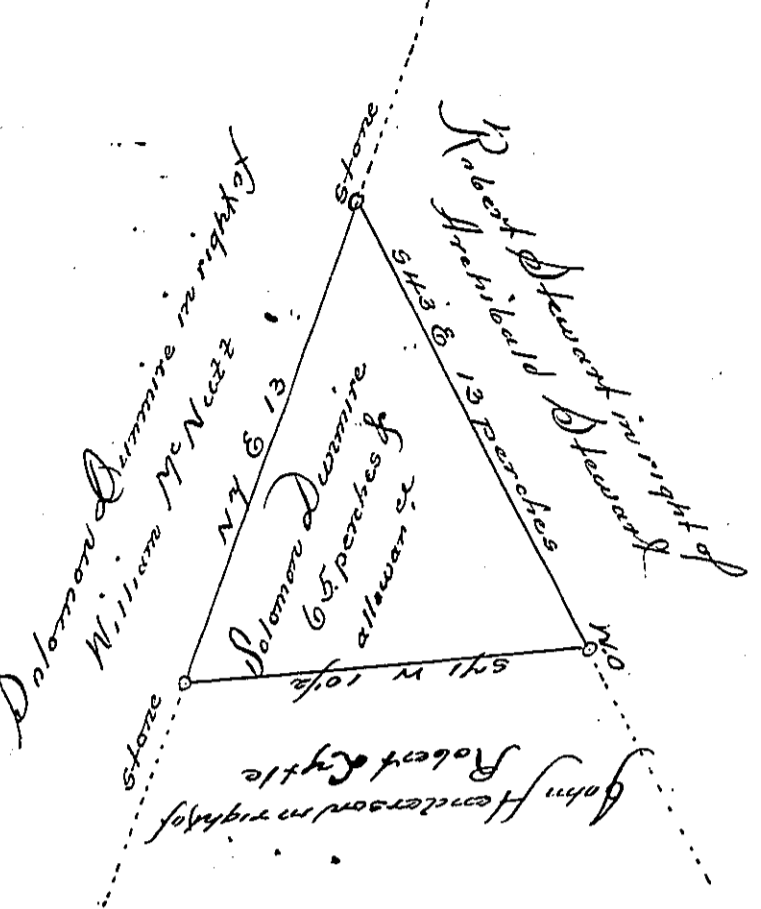 Solomon Dunmire in right of
William McNutt
stone
Robert Stewart in right of
Archibald Stewart
S43 E 13 perches
N 7 E 13
Solomon Dunmire
65 perches &
allowance
W.O
S71 W 10½
stone
John Henderson in right of
Robert Lytle